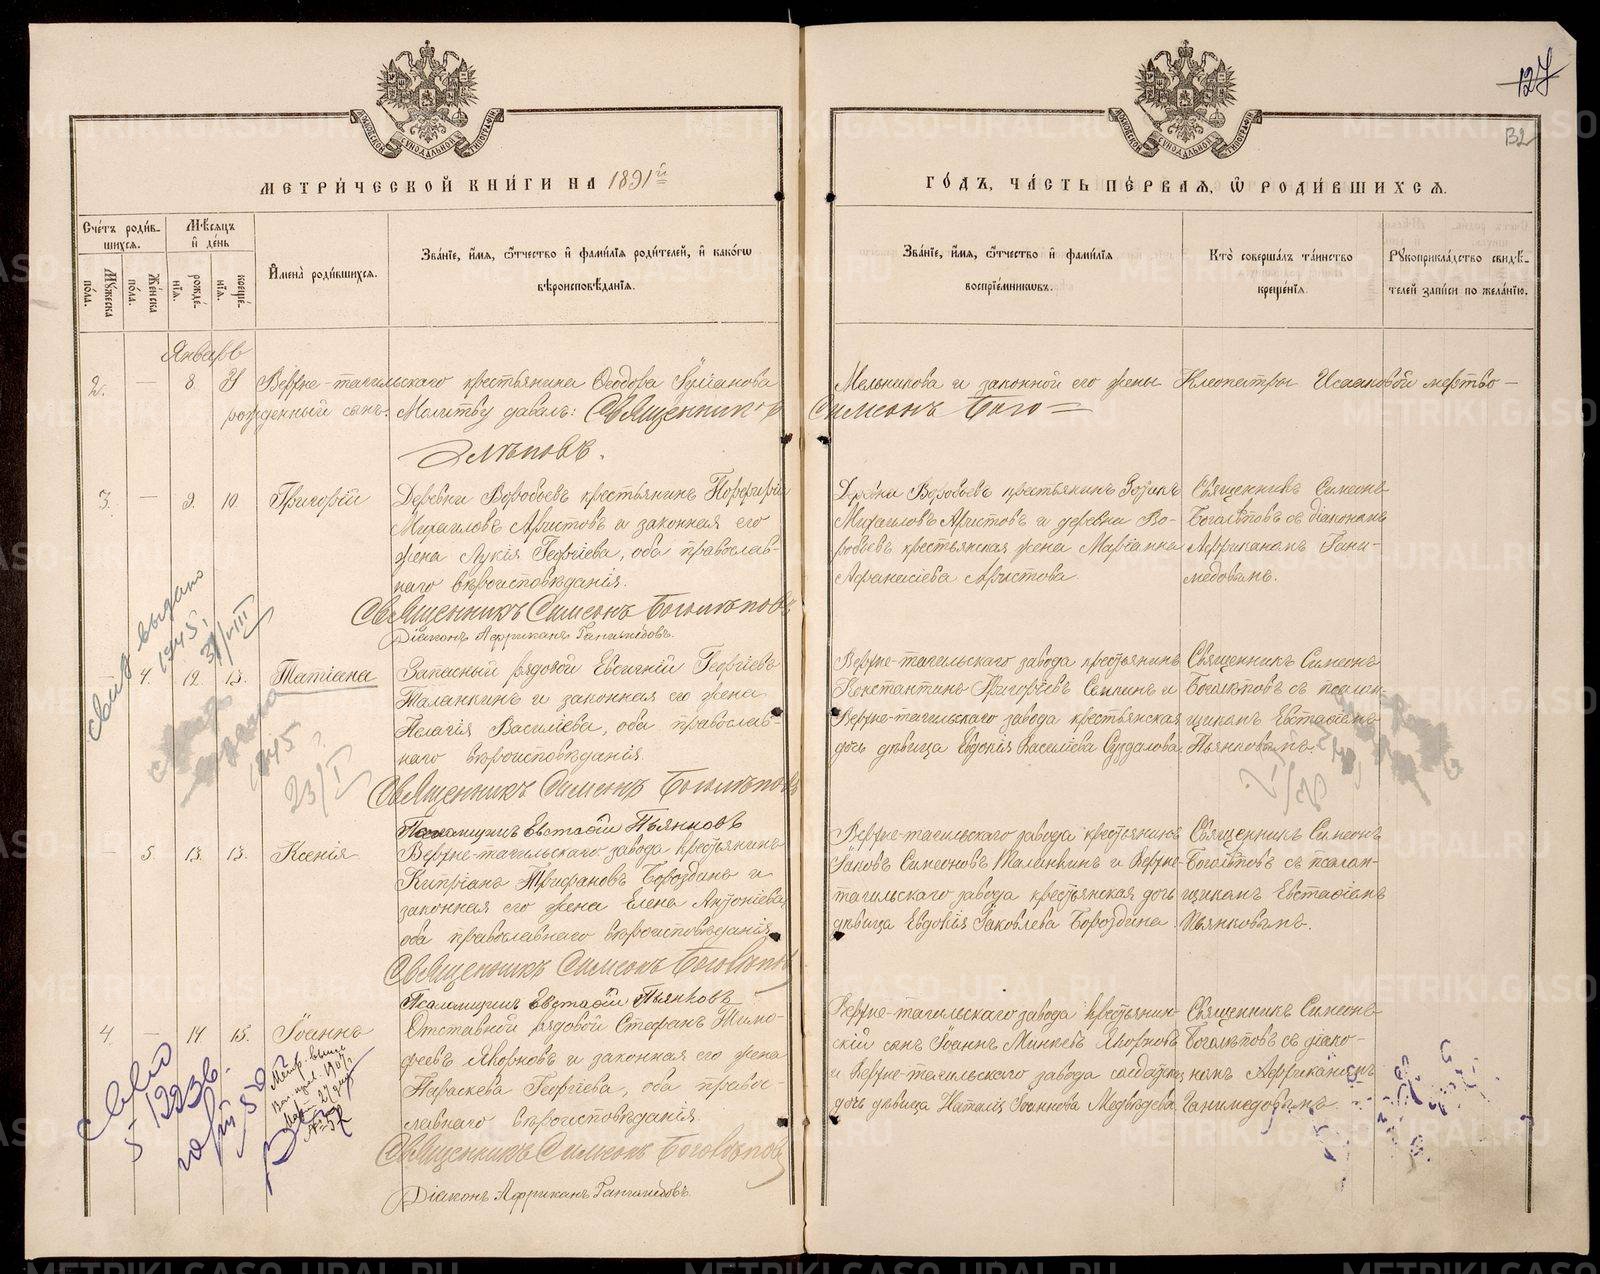 127
132
МЕТРИ́ЧЕСКОЙ КНИ́ГИ НА 1891й
ГО́ДЪ, ЧА́СТЬ ПЕ́РВАЯ, Ѿ РОДИ́ВШИХСѦ.
Сче́тъ роди́в-
шихсѧ.
Мѣ́сѧцъ
и҆ де́нь
Мꙋ́жеска
по́ла.
Же́нска
по́ла.
рожде́-
нїѧ.
креще́-
нїѧ.
И҆мена̀ роди́вшихсѧ.
Зва́нїе, и҆́мѧ, ѻ҆́тчество и҆ фами́лїѧ роди́телей, и҆ како́гѡ
вѣроисповѣ́данїѧ.
Зва́нїе, и҆́мѧ, ѻ҆́тчество и҆ фами́лїѧ
воспрїе́мникѡвъ.
Кто̀ соверша́лъ та́инство
креще́нїѧ.
Рꙋкоприкла́дство свидѣ́-
телей за́писи по жела́нїю.
Январь
2. — 8. Верхне-тагильскаго крестьянина Ѳеодора Мельникова и законной его жены Клеопатры Исааковой мертво-
рожденный сынъ. Молитву давалъ: Священникъ Симеонъ Бого=
лѣповъ.
3. — 9. 10. Григорій
Деревни Воробьевъ крестьянинъ Порфирій
Михаиловъ Аристовъ и законная его
жена Лукія Георгіева, оба православ-
наго вѣроисповѣданія.
Священникъ Симеонъ Боголѣповъ
Діаконъ Африканъ Ганимедовъ.
Деревни Воробьевъ крестьянинъ
Михаиловъ Аристовъ и деревни Во-
робьевъ крестьянская жена Маріамна
Афанасіева Аристова.
Священникъ Симеонъ
Боголѣповъ съ діакономъ
Африканомъ Гани-
медовымъ.
— 4. 12. 13. Татіана
Запасный рядовой Евгеній Георгіевъ
Таланкинъ и законная его жена
Пелагія Василіева, оба православ-
наго вѣроисповѣданія.
Священникъ Симеонъ Боголѣповъ
Псаломщикъ Евстафій Пьянковъ
Верхне-тагильскаго завода крестьянинъ
Константинъ Григоріевъ и
Верхне-тагильскаго завода крестьянская
дочь дѣвица Евдокія Василіева Суздалова.
Священникъ Симеонъ
Боголѣповъ съ псалом-
щикомъ Евстафіемъ
Пьянковымъ.
— 5. 13. 13. Ксенія
Верхне-тагильскаго завода крестьянинъ
Кипріанъ Трифановъ Бороздинъ и
законная его жена Елена Антоніева,
оба православнаго вѣроисповѣданія
Священникъ Симеонъ Боголѣповъ
Псаломщикъ Евстафій Пьянковъ
Верхне-тагильскаго завода крестьянинъ
Іаковъ Симеоновъ Таланкинъ и Верхне-
тагильскаго завода крестьянская дочь
дѣвица Евдокія Іаковлева Бороздина.
Священникъ Симеонъ
Боголѣповъ съ псалом-
щикомъ Евстафіемъ
Пьянковымъ.
4. — 14 15. Іоаннъ
Отставной рядовой Стефанъ Тимо-
феевъ Якорновъ и законная его жена
Параскева Георгіева, оба правос-
лавнаго вѣроисповѣданія.
Священникъ Симеонъ Боголѣповъ
Діаконъ Африканъ Ганимедовъ.
Верхне-тагильскаго завода крестьян-
скій сынъ Іоаннъ Минаевъ Якорновъ
и Верхне-тагильскаго завода солдатская
дочь дѣвица Наталія Іоаннова Медвѣдева.
Священникъ Симеонъ
Боголѣповъ съ діако-
номъ Африканомъ
Ганимедовымъ.
Свид выдано
1945г.
31/VIII
1945г
23/I
METRIKI.GASO-URAL.RU